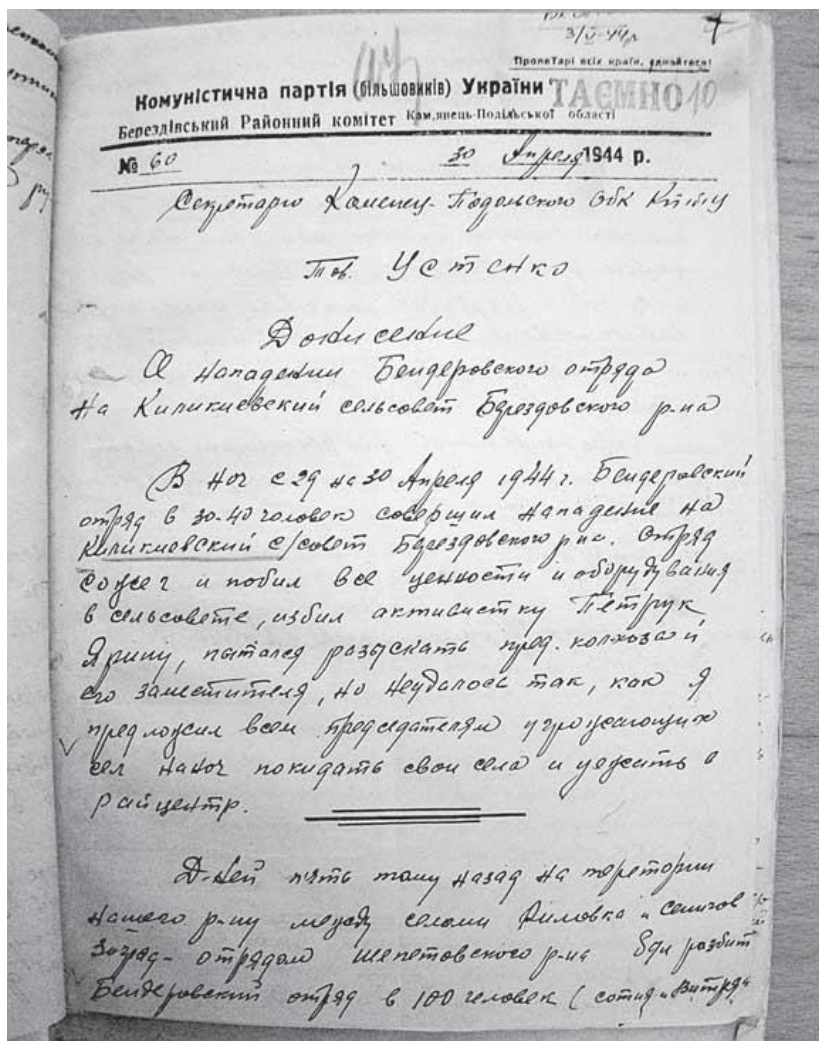 3/V-44р
Пролетарі всіх країн, єднайтеся!
Комуністична партія (більшовиків) України
ТАЄМНО 10
Берездівський Районний комітет Кам,янець-Подільської області
№ 60 30 Апреля 1944 р.
Секретарю Каменец-Подольского Обк КП/б/У
Тов. Устенко
Донисение
О нападении Бендеровского отряда
на Киликиевский сельсовет Берездовского р-на
В ноч с 29 на 30 Апреля 1944 г. Бендеровский
отряд в 30-40 человек совершил нападение на
Киликиевский с/совет Берездовского р-на. Отряд
сожег и побил все ценности и оборудувания
в сельсовете, избил активистку Петрук
Ярину, пытался разыскать пред. колхоза и
его заместителя, но неудалось так, как я
предложил всем председателям угрожающих
сел наноч покидать свои села и уезжить в
райцентр.
Д-ней пять тому назад на територии
нашего р-ну между селами и Сенигов
отрядом Шепетовского р-на был розбит
Бендеровский отряд в 100 человек (сотня